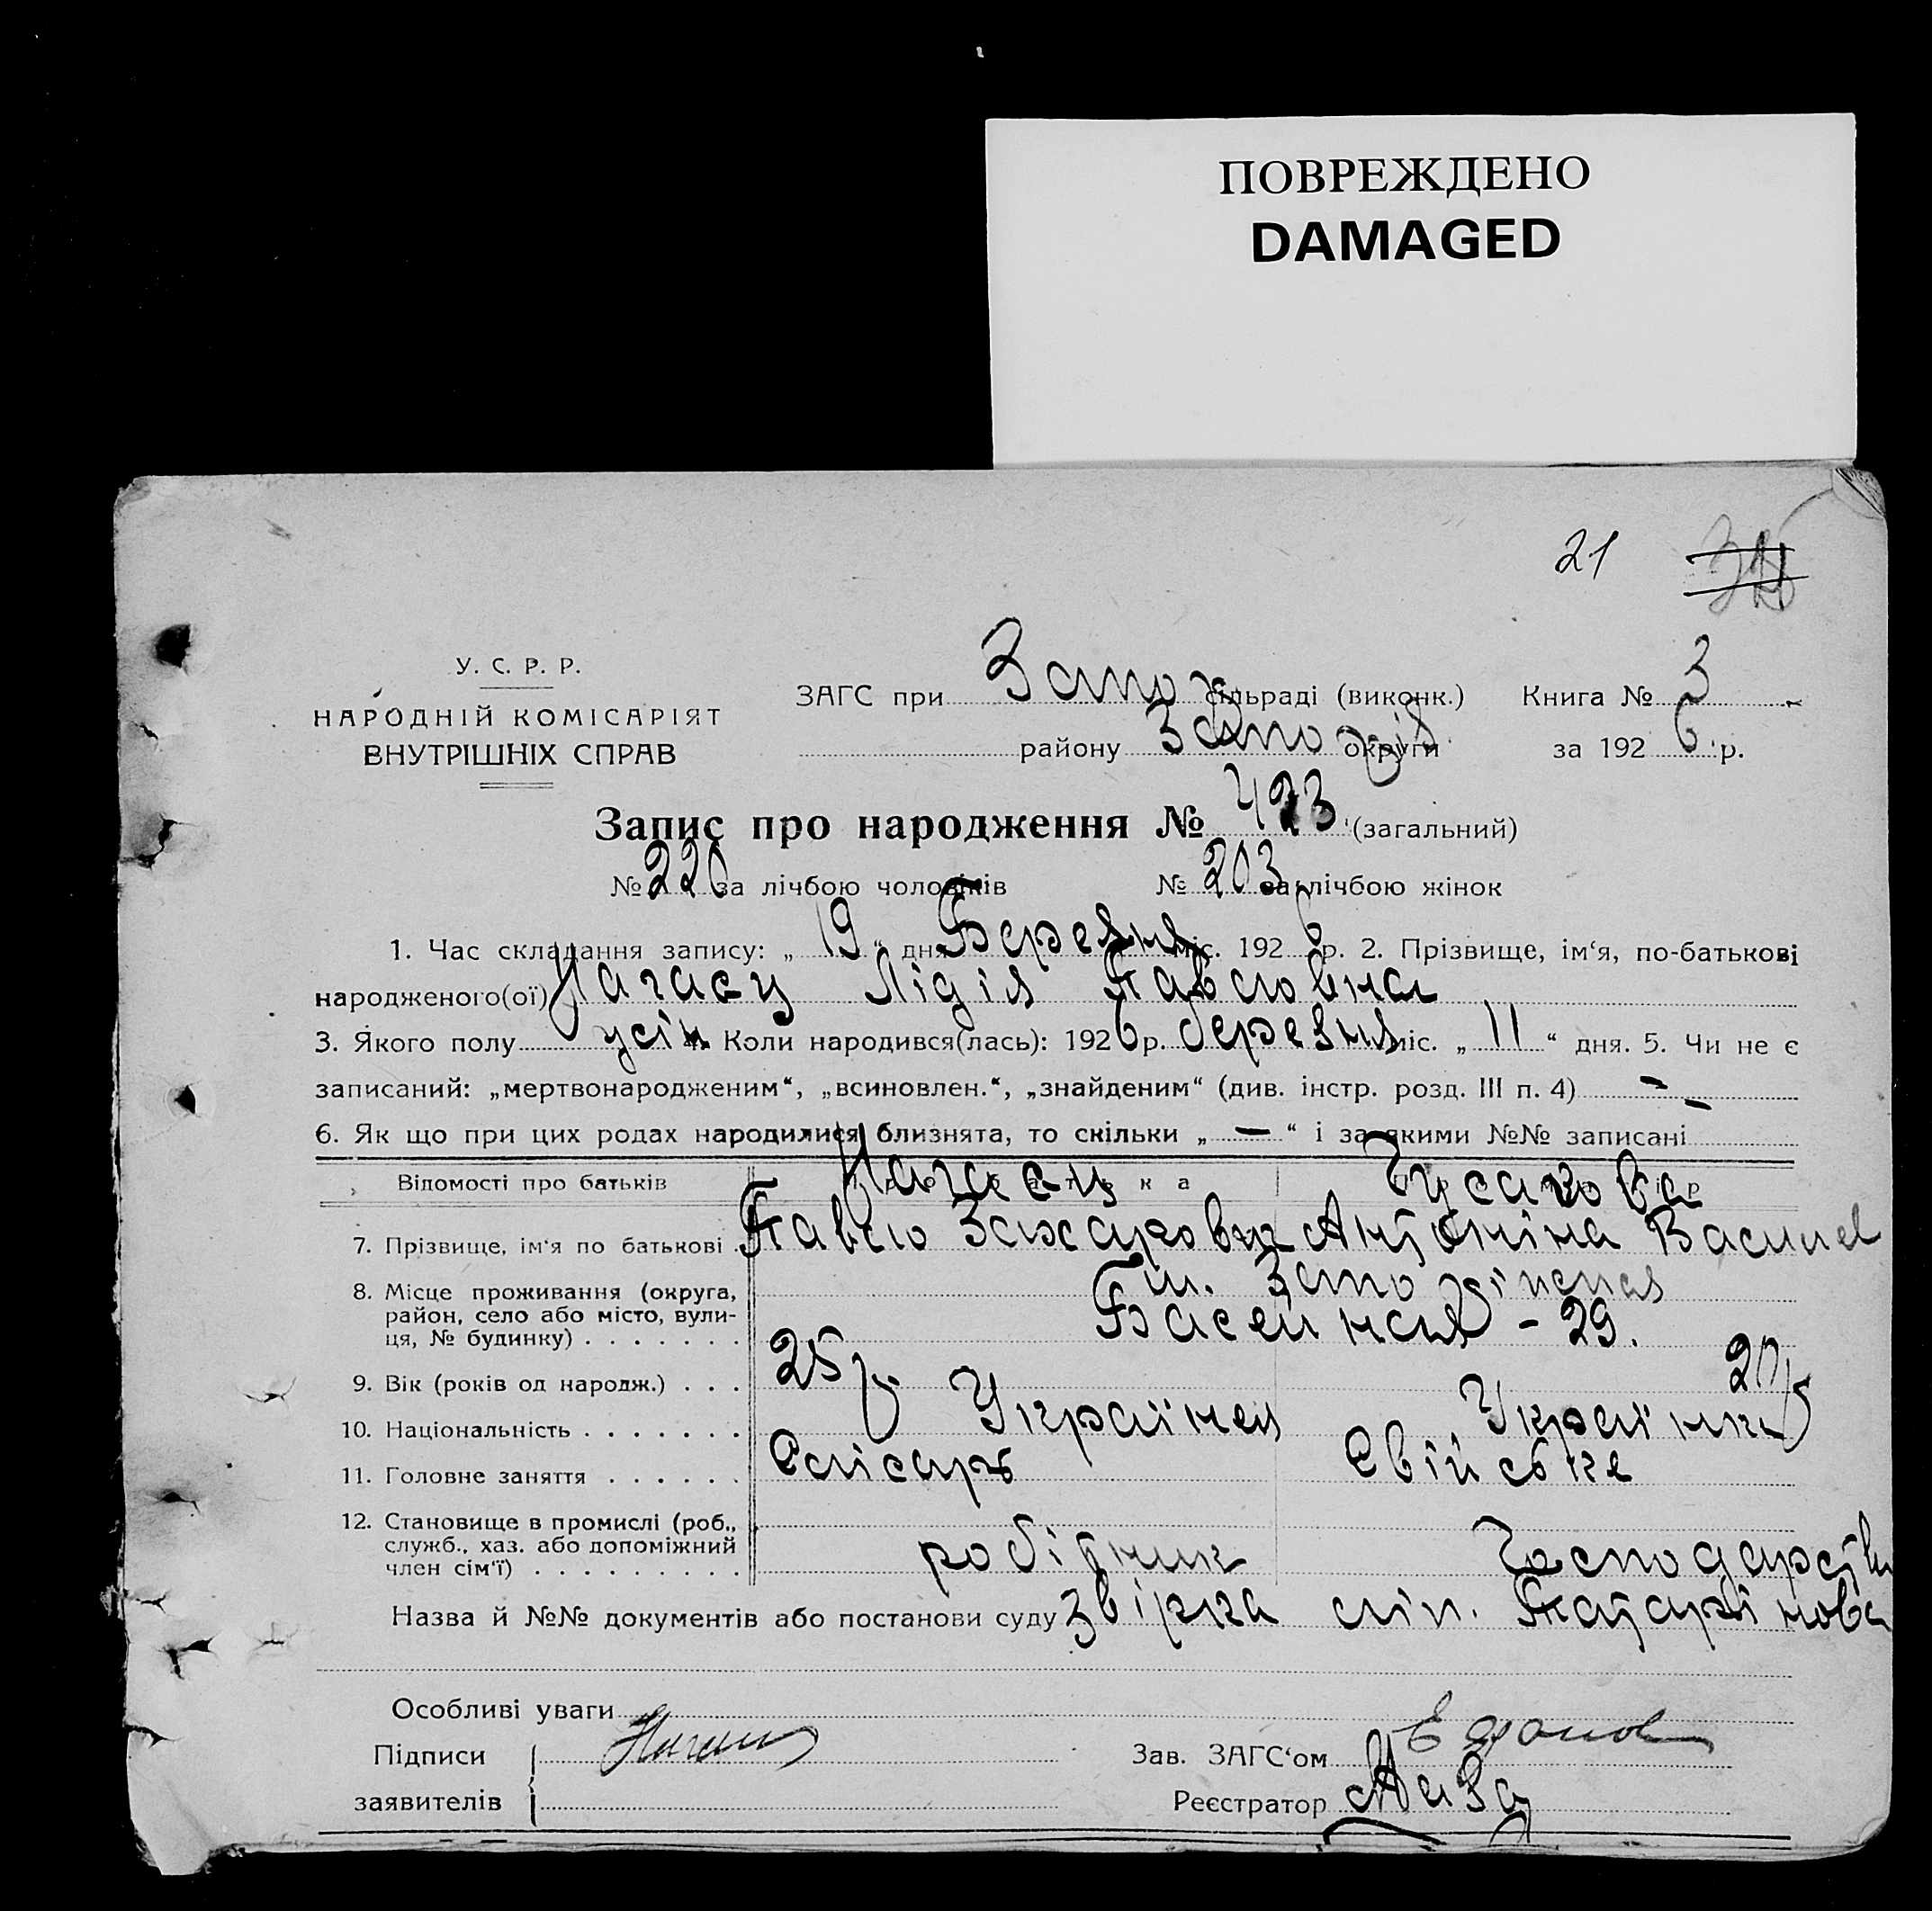 ПОВРЕЖДЕНО
DAMAGED
21
У. С. Р. Р.
НАРОДНІЙ КОМІСАРІЯТ
ВНУТРІШНІХ СПРАВ
ЗАГС при Запор сільраді (виконк.) Книга № 3
району Запорід округи за 1926 р.
Запис про народження № 423 (загальний)
№ 220 за лічбою чоловіків № 203 за лічбою жінок
1. Час складання запису: „19“ дня Березня міс. 1926 р. 2. Прізвище, ім'я, по-батькові
народженого(ої) Нагаєц Лідія Павловна
3. Якого полу 4. Коли народився(лась): 1926 р. березня міс. „11“ дня. 5. Чи не є
записаний: „мертвонародженим“, „всиновлен.“, „знайденим“ (див. інстр. розд. III п. 4) –
6. Як що при цих родах народилися близнята, то скільки „–“ і за якими №№ записані –
Відомості про батьків Нагаєц Гусакова
7. Прізвище, ім'я по батькові Павло Захарович Антоніна Васил
8. Місце проживання (округа, м.
район, село або місто, вули- Басейная – 29.
ця, № будинку) . . . . . . .
9. Вік (років од народж.) . . . 25 р. 20 р
10. Національність . . . . . . . Українец Українка
11. Головне заняття . . . . . . Слісарь Свійське
12. Становище в промислі (роб.,
служб., хаз. або допоміжний
член сім'ї) . . . . . . . . . робітник господарство
Назва й №№ документів або постанови суду звірка ліп. Татарінова
Особливі уваги
Підписи Зав. ЗАГС'ом
заявителів Реєстратор